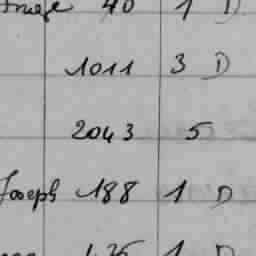 40 1 D
1011 3 D
2043 5
Joseph 188 1 D
1 D